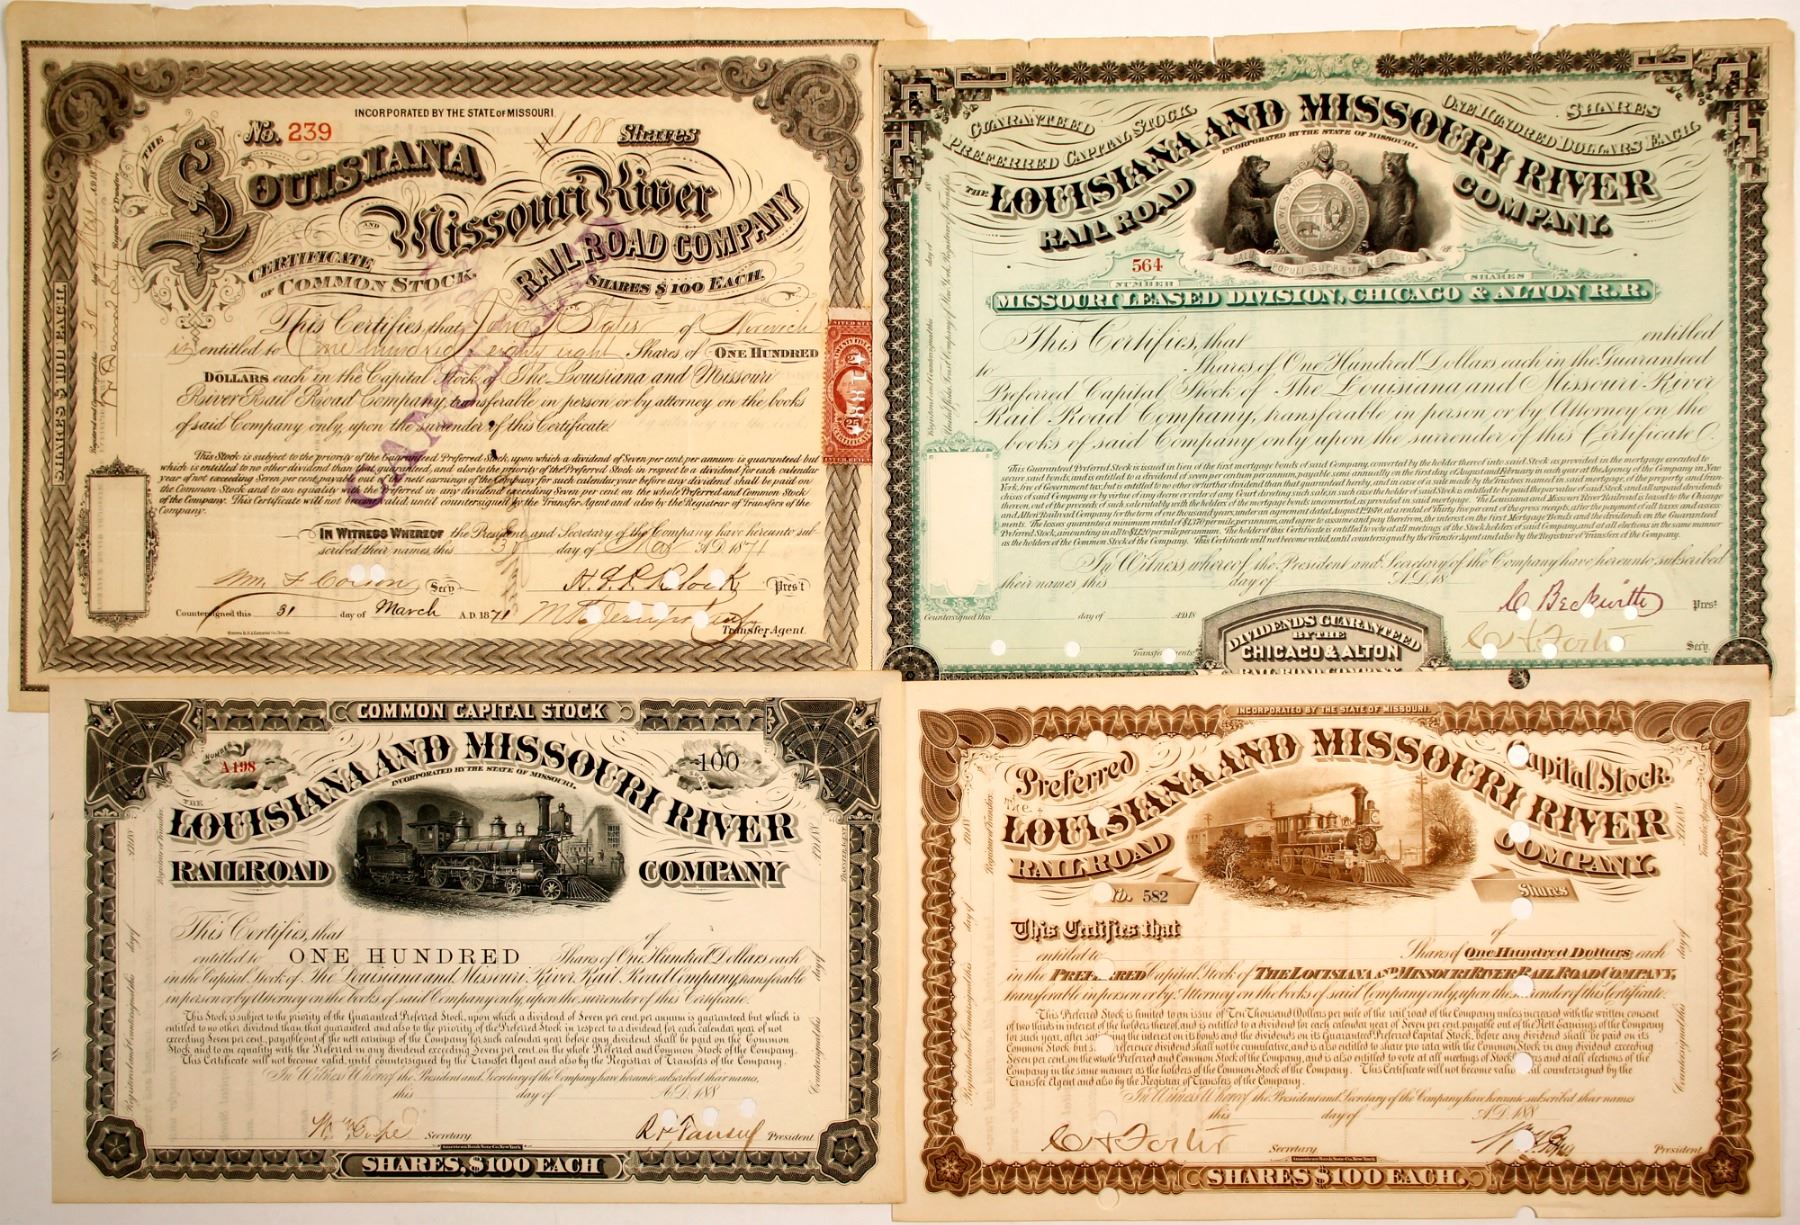 INCORPORATED BY THE STATE OF MISSOURI.
No. 239
188 Shares
THE LOUISIANA
AND Missouri River
RAIL ROAD COMPANY
CERTIFICATE
OF COMMON STOCK.
SHARES $100 EACH.
SHARES $100 EACH
CANCELLED
This Certifies, that of Norwich
is entitled to One hundred eighty eight Shares of ONE HUNDRED
DOLLARS each in the Capital Stock of The Louisiana and Missouri
River Rail Road Company, transferable in person or by attorney on the books
of said Company only, upon the surrender of this Certificate.
This Stock is subject to the priority of the Guaranteed Preferred Stock, upon which a dividend of Seven per cent per annum is guaranteed but
which is entitled to no other dividend than that guaranteed, and also to the priority of the Preferred Stock in respect to a dividend for each calendar
year of not exceeding Seven per cent, payable out of the nett earnings of the Company for such calendar year before any dividend shall be paid on
the Common Stock and to an equality with the Preferred in any dividend exceeding Seven per cent. on the whole Preferred and Common Stock
of the Company. This Certificate will not become valid, until countersigned by the Transfer Agent and also by the Registrar of Transfers of the
Company.
IN WITNESS WHEREOF the President and Secretary of the Company have hereunto sub-
scribed their names, this 30 day of Mar A.D. 1871
Secy. Pres't
Countersigned this 31 day of March A.D. 1871
Transfer Agent.
GUARANTEED
PREFERRED CAPITAL STOCK.
ONE HUNDRED DOLLARS EACH.
SHARES
THE LOUISIANA AND MISSOURI RIVER
INCORPORATED BY THE STATE OF MISSOURI.
RAIL ROAD COMPANY.
SALUS POPULI SUPREMA LEX ESTO
564
NUMBER
SHARES
MISSOURI LEASED DIVISION, CHICAGO & ALTON R.R.
This Certifies, that entitled
to Shares of One Hundred Dollars each in the Guaranteed
Preferred Capital Stock of The Louisiana and Missouri River
Rail Road Company, transferable in person or by Attorney on the
books of said Company only upon the surrender of this Certificate.
This Guaranteed Preferred Stock is issued in lieu of the first mortgage bonds of said Company, converted by the holder thereof into said Stock as provided in the mortgage executed to
secure said bonds, and is entitled to a dividend of seven per centum per annum, payable semi annually on the first day of August and February in each year at the Agency of the Company in New
York, free of Government tax, but is entitled to no other or further dividend than that guaranteed hereby, and in case of a sale made by the Trustees named in said mortgage, of the property and fran-
In Witness whereof the President and Secretary of the Company have hereunto subscribed
their names this day of A.D. 18
Countersigned this day of A.D. 18
C Beckwith Prest
C H Foster Secy.
DIVIDENDS GUARANTEED
BY THE
CHICAGO & ALTON
RAIL ROAD COMPANY
COMMON CAPITAL STOCK
NUMBER
A198
100
THE LOUISIANA AND MISSOURI RIVER
INCORPORATED BY THE STATE OF MISSOURI.
RAILROAD COMPANY
This Certifies, that of
entitled to ONE HUNDRED Shares of One Hundred Dollars each
in the Capital Stock of The Louisiana and Missouri River Rail Road Company, transferable
in person or by Attorney on the books of said Company only, upon the surrender of this Certificate.
This Stock is subject to the priority of the Guaranteed Preferred Stock, upon which a dividend of Seven per cent. per annum is guaranteed but which is
entitled to no other dividend than that guaranteed and also to the priority of the Preferred Stock in respect to a dividend for each calendar year of not
exceeding Seven per cent. payable out of the nett earnings of the Company for such calendar year before any dividend shall be paid on the Common
Stock and to an equality with the Preferred in any dividend exceeding Seven per cent. on the whole Preferred and Common Stock of the Company.
This Certificate will not become valid, until countersigned by the Transfer Agent and also by the Registrar of Transfers of the Company.
In Witness Whereof the President and Secretary of the Company have hereunto subscribed their names,
this day of A.D. 188
Secretary President
American Bank Note Co. New York
SHARES, $100 EACH
INCORPORATED BY THE STATE OF MISSOURI.
Preferred Capital Stock.
The
LOUISIANA AND MISSOURI RIVER
RAILROAD COMPANY.
No. 582
Shares
This Certifies that of
entitled to Shares of One Hundred Dollars, each
in the PREFERRED Capital Stock of THE LOUISIANA AND MISSOURI RIVER RAIL ROAD COMPANY,
transferable in person or by Attorney on the books of said Company only, upon the surrender of this Certificate.
This Preferred Stock is limited to an issue of Ten Thousand Dollars per mile of the rail road of the Company unless increased with the written consent
of two thirds in interest of the holders thereof, and is entitled to a dividend for each calendar year of Seven per cent. payable out of the Nett Earnings of the Company
for such year, after the interest on its Bonds and the dividends on its Guaranteed Preferred Capital Stock, before any dividend shall be paid on its
Common Stock but such preference dividend shall not be cumulative, and is also entitled to share pro rata with the Common Stock in any dividend exceeding
Seven per cent. on the whole Preferred and Common Stock of the Company, and is also entitled to vote at all meetings of Stockholders and at all elections of the
Company in the same manner as the holders of the Common Stock of the Company. This Certificate will not become valid until countersigned by the
Transfer Agent and also by the Registrar of Transfers of the Company.
In Witness Whereof the President and Secretary of the Company have hereunto subscribed their names
this day of A.D. 188
C H Foster Secretary President
American Bank Note Co. New York
SHARES $100 EACH.